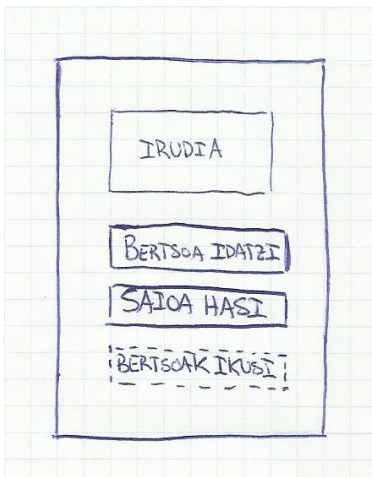 IRUDIA
BERTSOA IDATZI
SAIOA HASI
BERTSOAK IKUSI